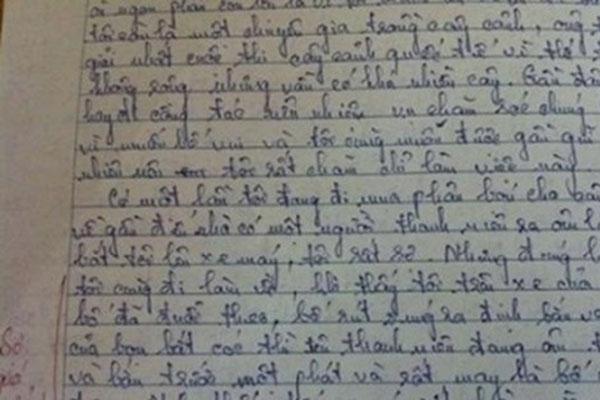 tôi còn là một chuyên gia trồng cây cảnh, ông t
giải nhất cuộc thi cây cảnh quốc tế về thơ
không rộng nhưng vẫn có khá nhiều cây. Gần đâ
hay đi công tác nên nhiệm vụ chăm soc chúng
vì muốn bố vui và tôi cũng muốn được gần gũi
nhiên nữa nên tôi rất chăm chỉ làm việc này.
Có một lần tôi đang đi mua phân bón cho bô
về gần đến nhà có một người thanh niên ra
bắt tôi lên xe máy, tôi rất sợ. Nhưng đúng l
tôi cũng đi làm về, khi thấy tôi trên xe của
bố đã đuổi theo, bố rút súng ra định bắn và
của bọn bắt cóc thì tên thanh niên đang ôm t
và bắn trước một phát và rất may là bố